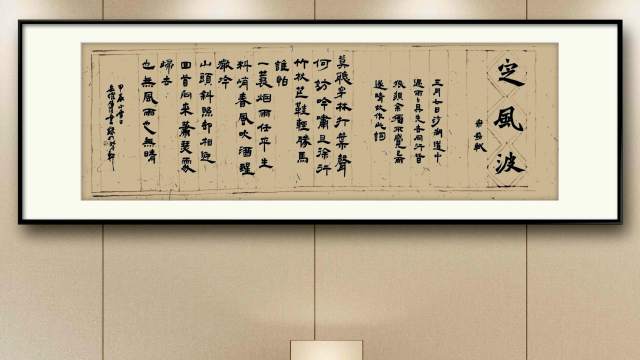 定風波
宋蘇軾
三月七日沙湖道中
遇雨雨具先去同行皆
狼狽余獨不覺已而
遂晴故作此詞
莫聽穿林打葉聲
何妨吟嘯且徐行
竹杖芒鞋輕勝馬
誰怕
一蓑烟雨任平生
料峭春風吹酒醒
微冷
山頭斜照却相迎
回首向來蕭瑟處
歸去
也無風雨也無晴
甲辰小雪日